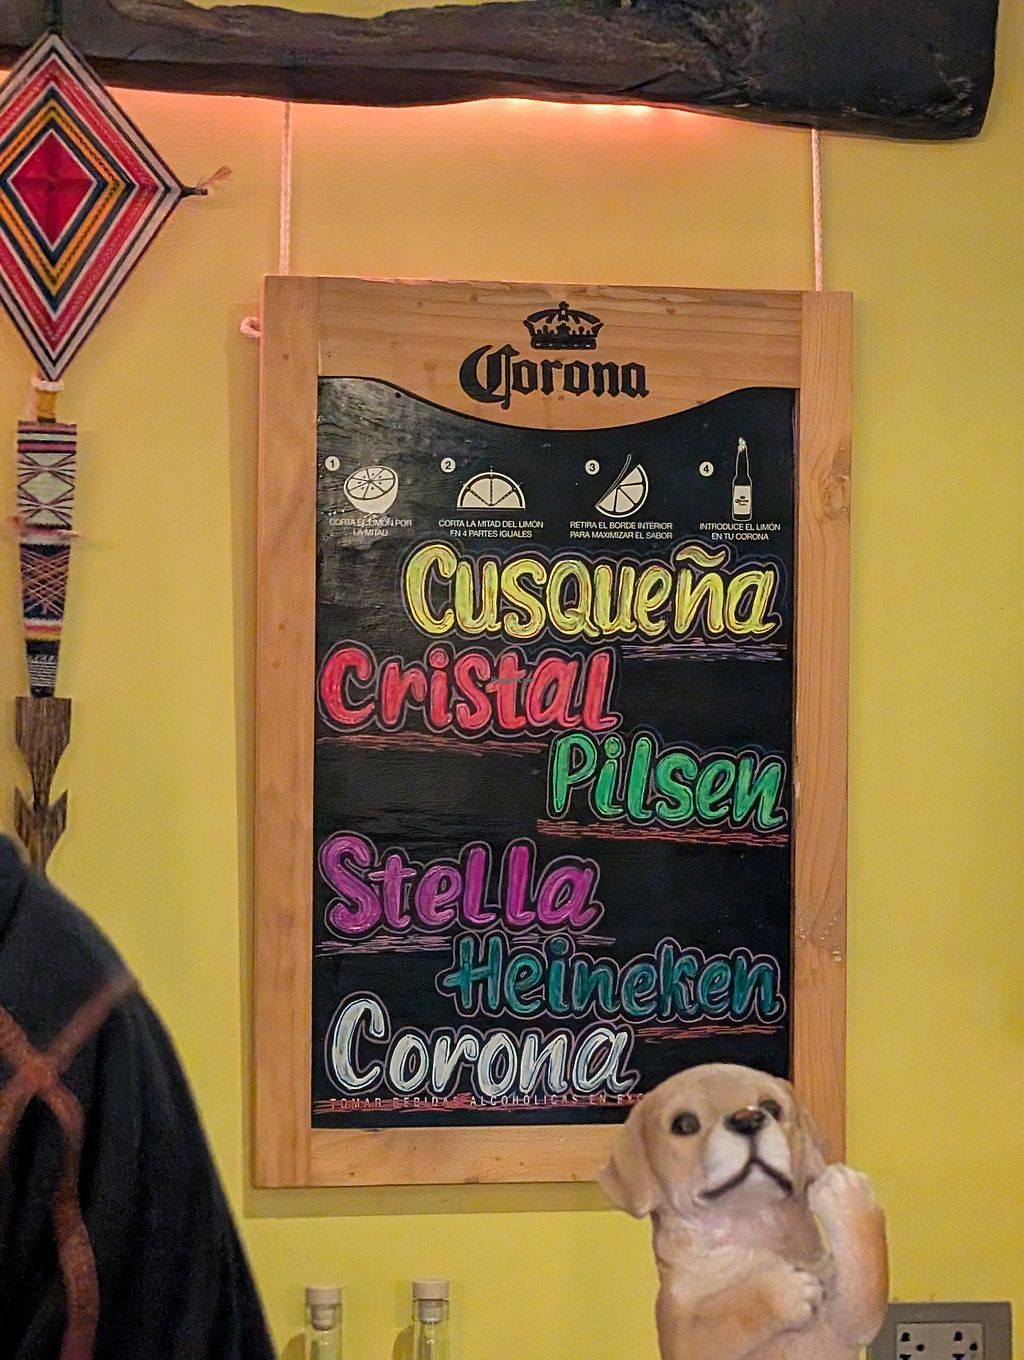 Corona
1 2 3 4
CORTA EL LIMÓN POR LA MITAD
CORTA LA MITAD DEL LIMÓN EN 4 PARTES IGUALES
RETIRA EL BORDE INTERIOR PARA MAXIMIZAR EL SABOR
INTRODUCE EL LIMÓN EN TU CORONA
Cusqueña
Cristal
Pilsen
Stella
Heineken
Corona
TOMAR BEBIDAS ALCOHÓLICAS EN